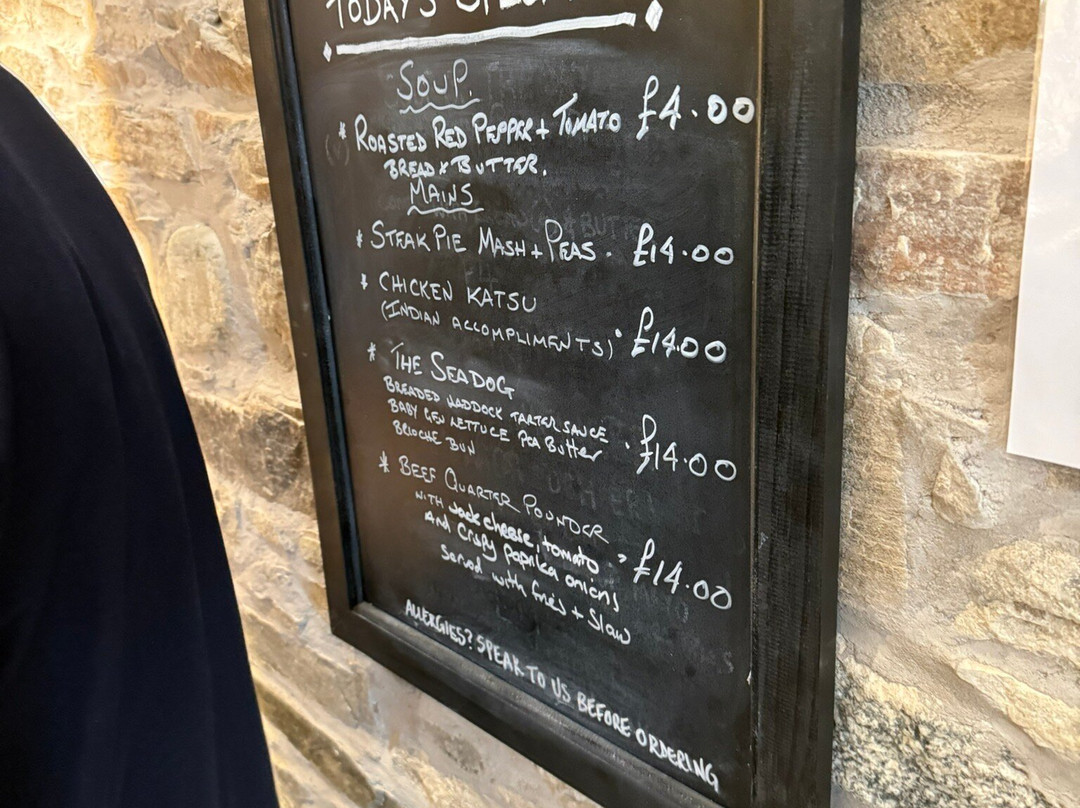 TODAY'S
SOUP.
* ROASTED RED PEPPER + TOMATO £4.00
BREAD & BUTTER.
MAINS
* STEAK PIE MASH + PEAS . £14.00
* CHICKEN KATSU
(INDIAN ACCOMPLIMENTS) . £14.00
* THE SEADOG
BREADED HADDOCK TARTER SAUCE
BABY GEM LETTUCE PEA Butter . £14.00
BRIOCHE BUN
* BEEF QUARTER POUNDER
WITH Jack cheese, tomato
AND Crispy paprika onions £14.00
Served with fries + Slaw
ALLERGIES? SPEAK TO US BEFORE ORDERING